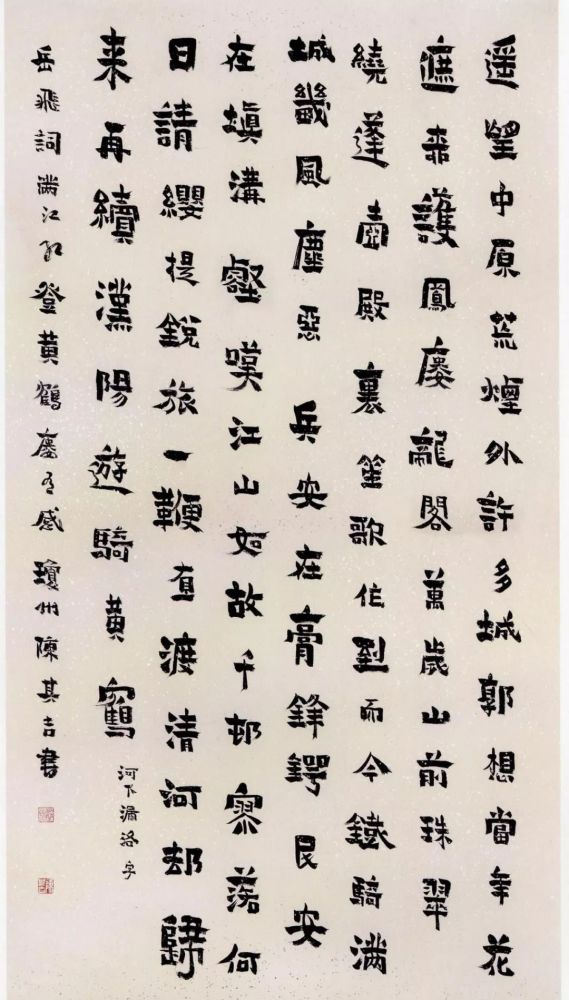 遥望中原荒煙外許多城郭想當年花
遮柳護鳳廔龍閣萬歲山前珠翠
繞蓬壺殿裏笙歌作到而今鐵騎滿
城畿風塵惡兵安在膏鋒鍔民安
在填溝壑嘆江山如故千邨寥落何
日請纓提銳旅一鞭直渡清河却歸
来再續漢陽遊騎黄鶴
河下漏洛字
岳飛詞滿江紅登黄鶴廔有感瓊州陳其吉書